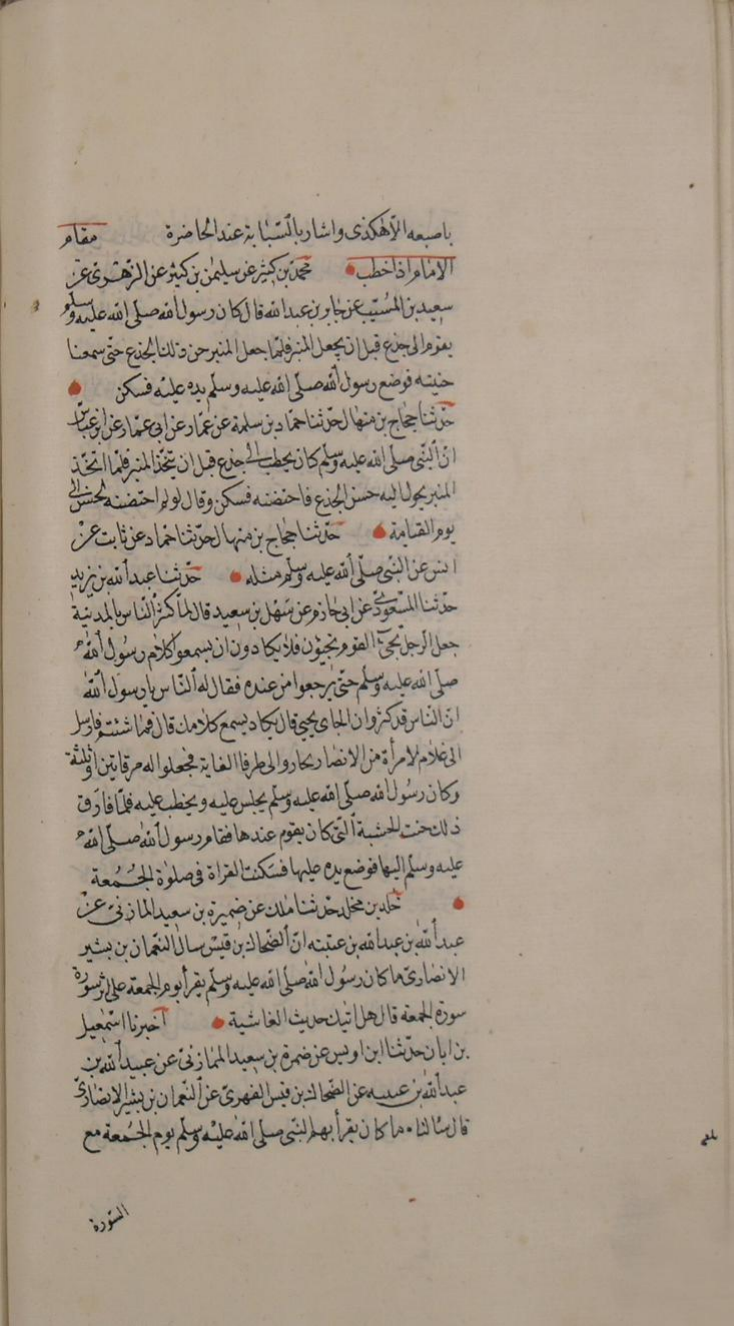 باصبعه الا هكذى واشار بالسّبابة عند الحاضرة مقام
الامام اذا خطب محمد بن كثير عن سليمن بن كثير عن الزهرى عن
سعيد بن المسيّب عن جابر بن عبدالله قال كان رسول الله صلى الله عليه وسلم
يقوم الى جذع قبل ان يجعل المنبر فلمّا جعل المنبر حن ذلك الجذع حتى سمعنا
حنينه فوضع رسول الله صلى الله عليه وسلم يده عليه فسكن
حدّثنا حجاج بن منهال حدّثنا حمّاد بن سلمة عن عمّار عن ابى عمّار عن ابن عباس
انّ النّبى صلى الله عليه وسلم كان يخطب الى جذع قبل ان يتّخذ المنبر فلمّا اتّخذ
المنبر يحول اليه حسن الجذع فاحتضنه فسكن وقال لو لم احتضنه لحسن الى
يوم القيامة حدّثنا حجاج بن منهال حدّثنا حمّاد عن ثابت عن
انس عن النّبى صلّى الله عليه وسلّم مثله حدّثنا عبدالله بن يزيد
حدّثنا المسعودى عن ابى حازم عن سهل بن سعيد قال لما كثر الناس بالمدينة
جعل الرجل يجئ القوم يجيؤن فلا يكادون ان يسمعوا كلام رسول الله
صلى الله عليه وسلم حتى يرجعوا من عنده فقال له النّاس يا رسول الله
انّ الناس قد كثروا وان الجاى يجيى قال يكاد يسمع كلامك قال فما شئتم فارسل
الى غلام لامرأة من الانصار نجار والى طرفا الغابة فجعلوا له مرقاتين او ثلثة
وكان رسول الله صلى الله عليه وسلم يجلس عليه ويخطب عليه فلمّا فارق
ذلك حنت الخشبة التى كان يقوم عندها فقام رسول الله صلّى الله
عليه وسلم اليها فوضع يده عليها فسكنت القراة فى صلوة الجمعة
خالد بن مخلد حدّثنا ملك عن ضميرة بن سعيد المازنى عن
عبدالله بن عبدالله بن عتبة انّ الضّحاك بن قيس سال النّعمان بن بشير
الانصارى ما كان رسول الله صلى الله عليه وسلّم يقرأ يوم الجمعة على اثر سورة
سورة الجمعة قال هل اتيك حديث الغاشية اخبرنا اسمعيل
بن ابان حدّثنا ابن اويس عن ضمرة بن سعيد المازنى عن عبيد الله بن
عبدالله بن عن الضّحاك بن قيس الفهرى عن النّعمان بن بشير الانصارى
قال سالنا ما كان يقرأ بهم النّبى صلى الله عليه وسلّم يوم الجمعة مع
السّورة